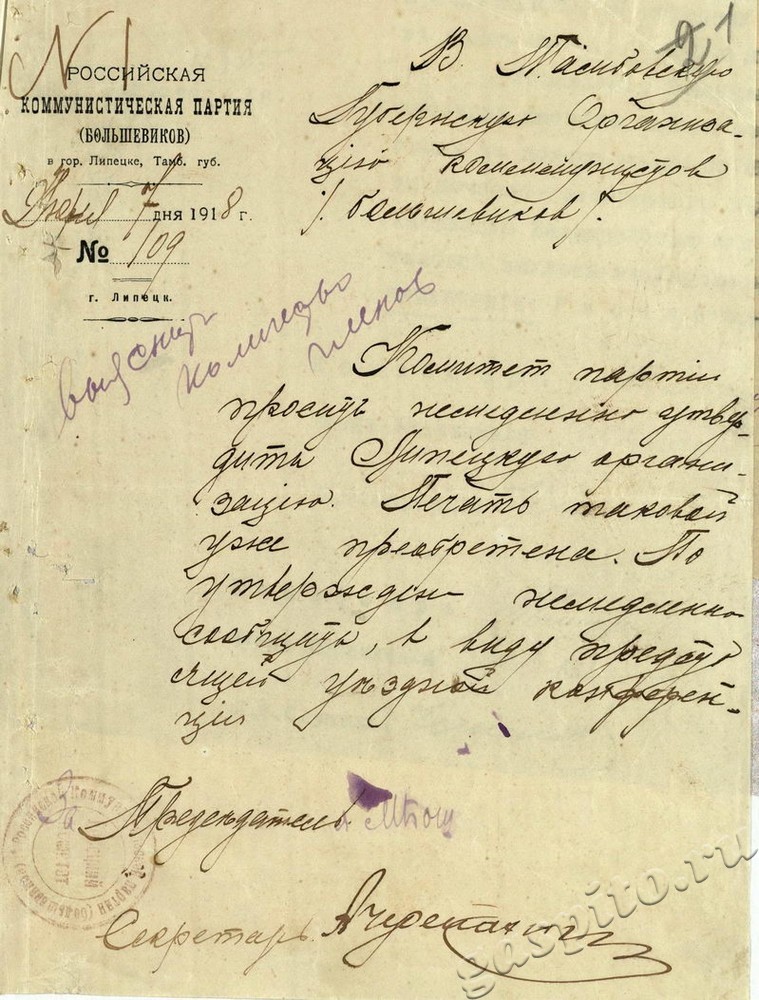 N 1
21
РОССИЙСКАЯ
КОММУНИСТИЧЕСКАЯ ПАРТИЯ
(БОЛЬШЕВИКОВ)
в гор. Липецке, Тамб. губ.
7 дня 1918 г.
№ 109
г. Липецк.
В Тамбовскую
Губернскую Организа-
цію коммунистов
/. большевиков /.
выяснить
количество
членов
Комитет партіи
просит немедленно утвер-
дить Липецкую органи-
зацію. Печать таковой
уже преобретена. По
утвержден немедленно
сообщить, в виду предсто
ящей уѣздной конферен-
ціи
За Председатель
Секретарь
gaspito.ru